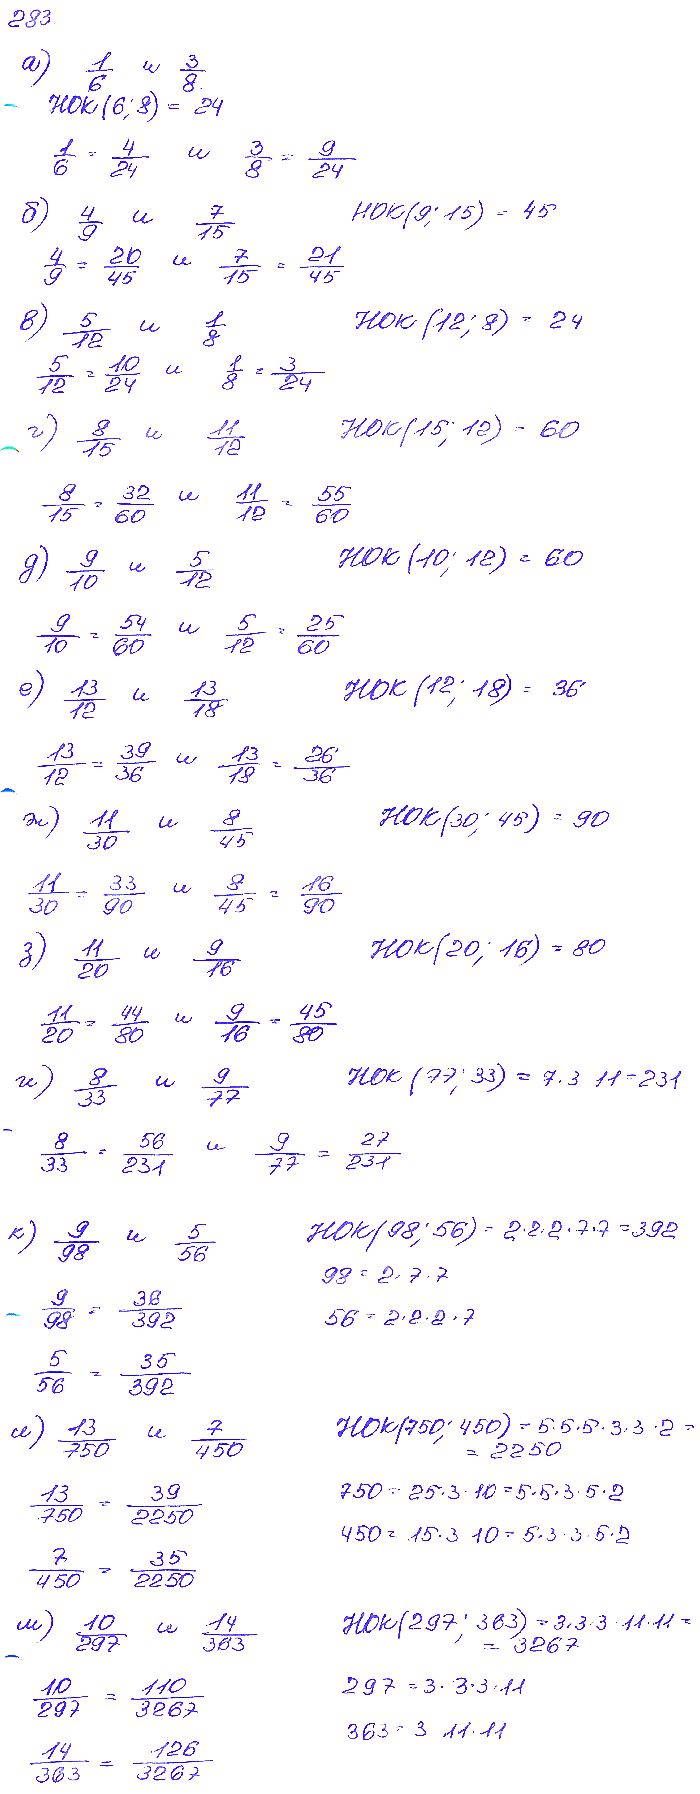 283
а) 1/6 и 3/8
НОК(6; 8) = 24
1/6 = 4/24 и 3/8 = 9/24
б) 4/9 и 7/15 НОК(9; 15) = 45
4/9 = 20/45 и 7/15 = 21/45
в) 5/12 и 1/8 НОК(12; 8) = 24
5/12 = 10/24 и 1/8 = 3/24
г) 8/15 и 11/12 НОК(15; 12) = 60
8/15 = 32/60 и 11/12 = 55/60
д) 9/10 и 5/12 НОК(10; 12) = 60
9/10 = 54/60 и 5/12 = 25/60
е) 13/12 и 13/18 НОК(12; 18) = 36
13/12 = 39/36 и 13/18 = 26/36
ж) 11/30 и 8/45 НОК(30; 45) = 90
11/30 = 33/90 и 8/45 = 16/90
з) 11/20 и 9/16 НОК(20; 16) = 80
11/20 = 44/80 и 9/16 = 45/80
и) 8/33 и 9/77 НОК(77; 33) = 7·3 11 = 231
8/33 = 56/231 и 9/77 = 27/231
к) 9/98 и 5/56 НОК(98; 56) = 2·2·2·7·7 = 392
98 = 2·7·7
9/98 = 36/392 56 = 2·2·2·7
5/56 = 35/392
л) 13/750 и 7/450 НОК(750; 450) = 5·5·5·3·3·2 =
= 2250
13/750 = 39/2250 750 = 25·3·10 = 5·5·3·5·2
450 = 15·3 10 = 5·3·3·5·2
7/450 = 35/2250
м) 10/297 и 14/363 НОК(297; 363) = 3·3·3·11·11 =
= 3267
10/297 = 110/3267 297 = 3·3·3·11
363 = 3 11·11
14/363 = 126/3267